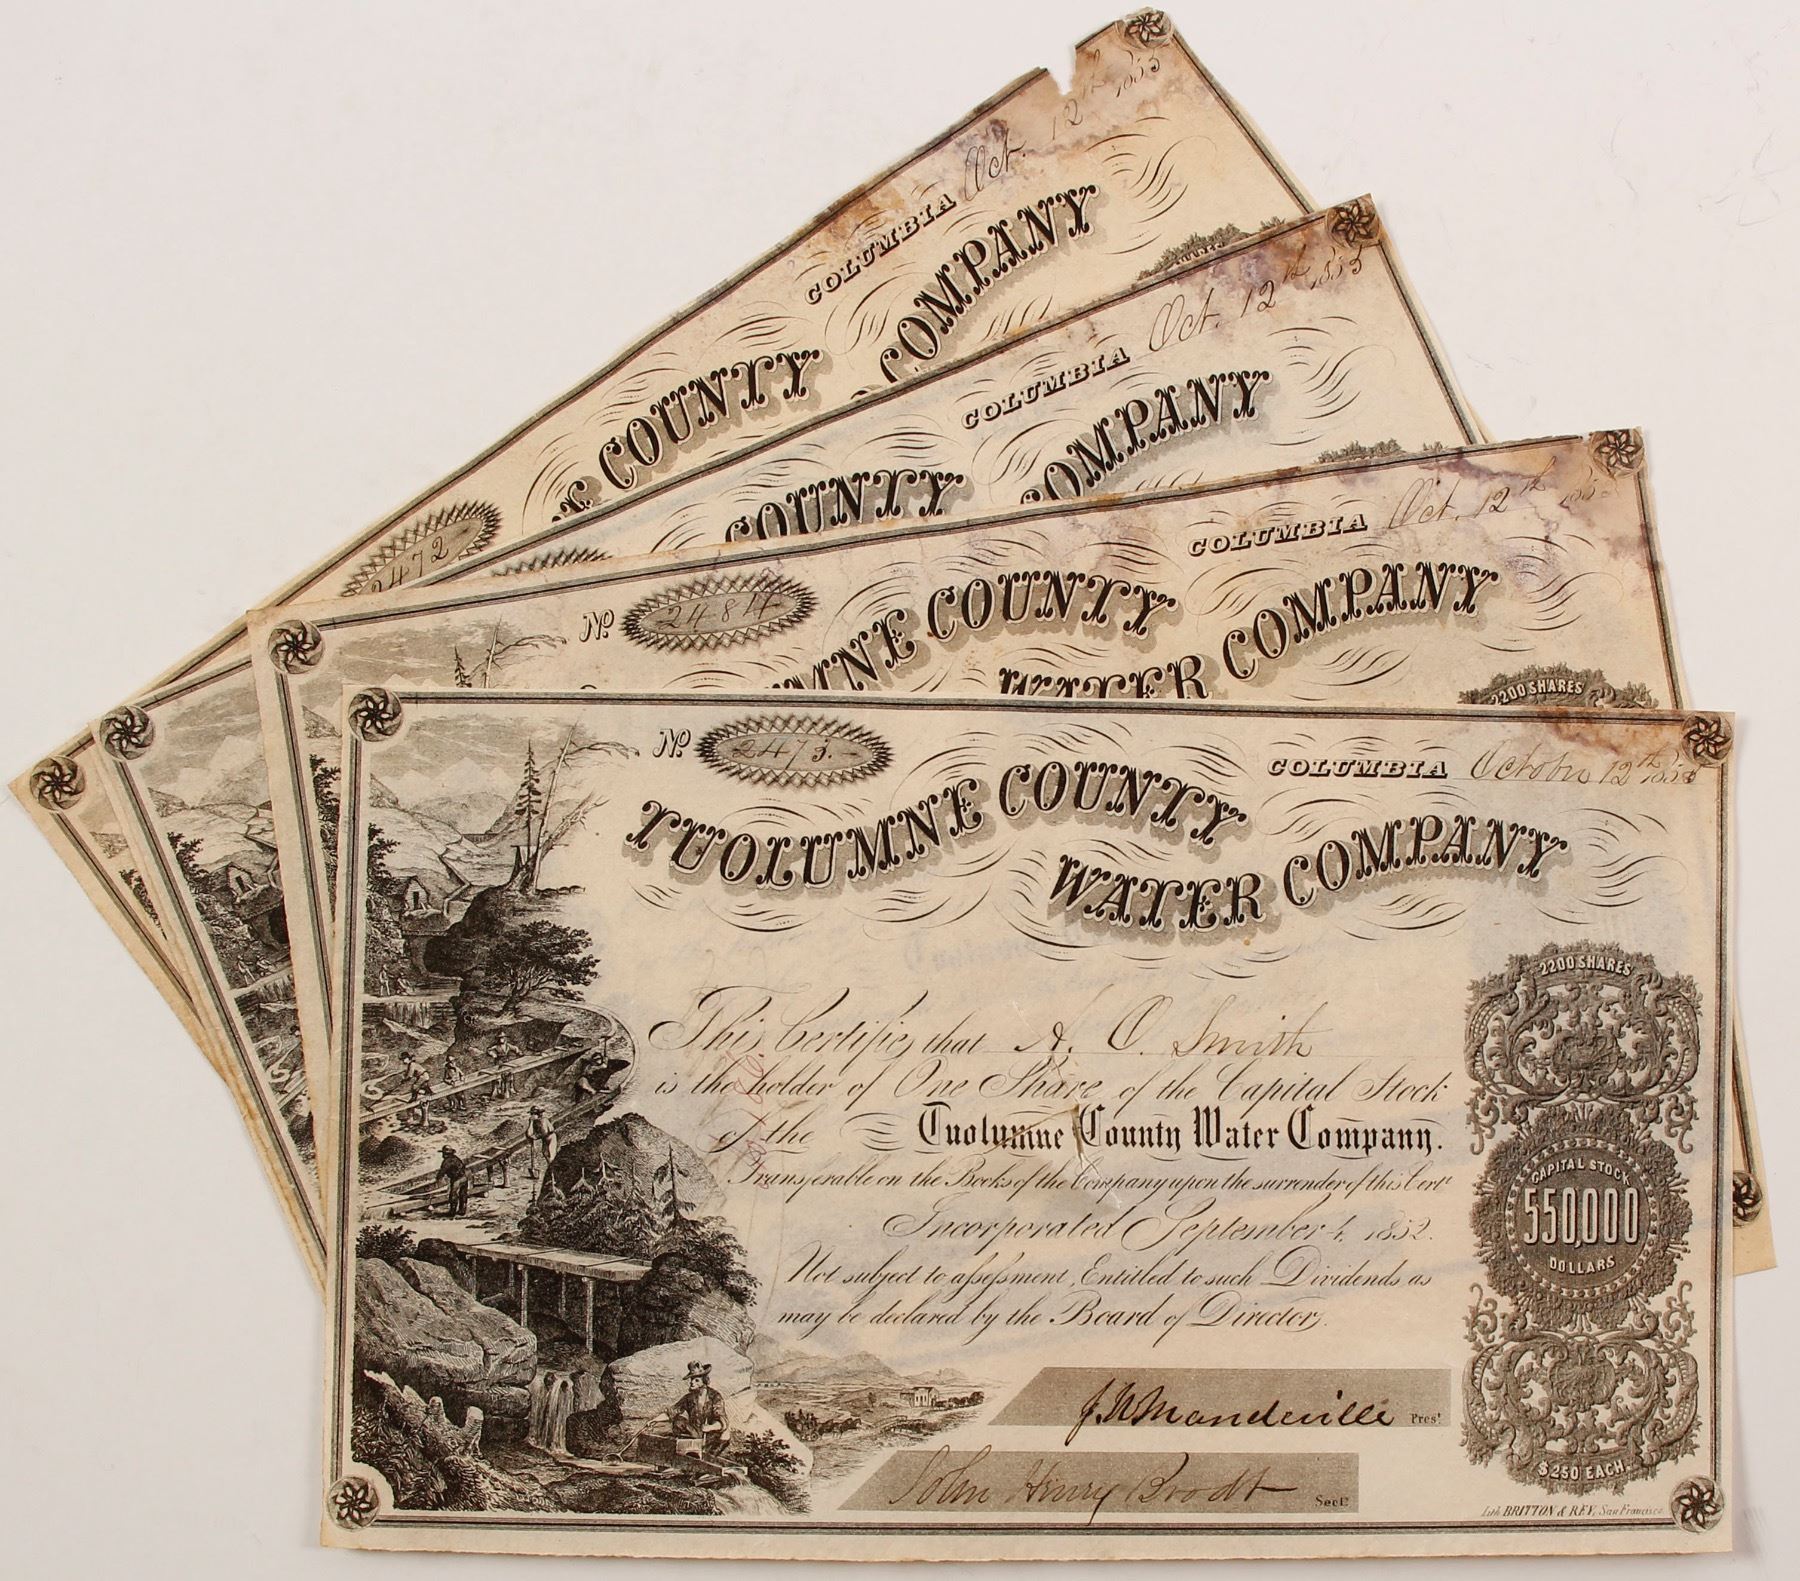 COLUMBIA Oct. 12th 1855
COUNTY
COMPANY
2472
COLUMBIA Oct. 12th 1855
COUNTY
COMPANY
COLUMBIA Oct. 12th 1855
No 2484
MNE COUNTY
WATER COMPANY
2200 SHARES
No 2473.
COLUMBIA October 12th 1855
TUOLUMNE COUNTY
WATER COMPANY
2200 SHARES
This Certifies that A. O. Smith
is the holder of One Share of the Capital Stock
of the Tuolumne County Water Company.
Transferable on the Books of the Company upon the surrender of this Certe
Incorporated September 4, 1852.
Not subject to assessment, Entitled to such Dividends as
may be declared by the Board of Directors.
CAPITAL STOCK
550,000
DOLLARS
$250 EACH.
J W Mandeville Prest
John Henry Brodt Secty
Lith. BRITTON & REY, San Francisco